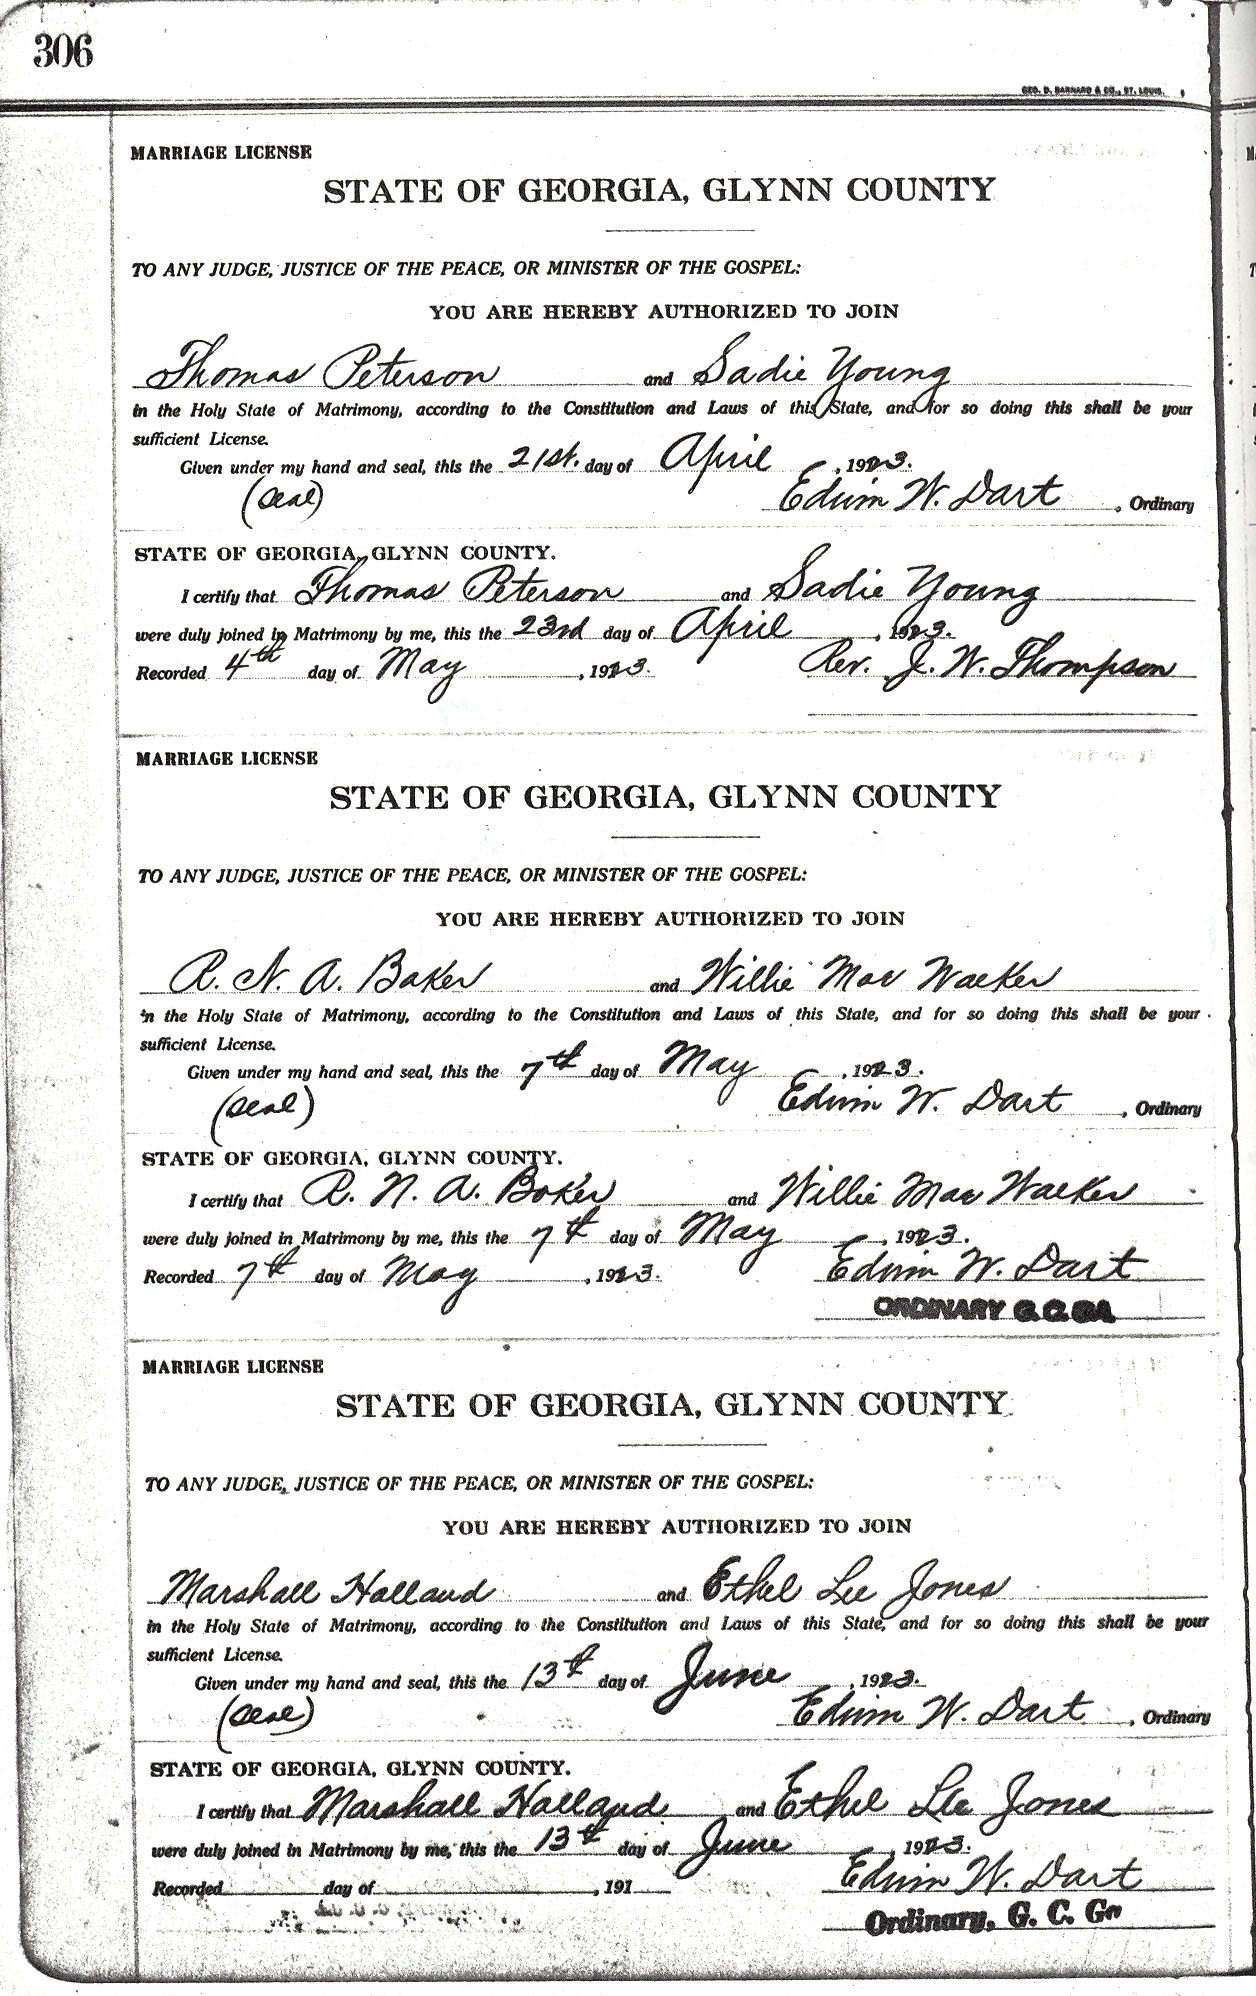 306
GEO. D. BARNARD & CO., ST. LOUIS.
MARRIAGE LICENSE
STATE OF GEORGIA, GLYNN COUNTY
TO ANY JUDGE, JUSTICE OF THE PEACE, OR MINISTER OF THE GOSPEL:
YOU ARE HEREBY AUTHORIZED TO JOIN
Thomas Peterson and Sadie Young
in the Holy State of Matrimony, according to the Constitution and Laws of this State, and for so doing this shall be your
sufficient License.
Given under my hand and seal, this the 21st. day of April, 1923.
(Seal) Edwin W. Dart, Ordinary
STATE OF GEORGIA, GLYNN COUNTY.
I certify that Thomas Peterson and Sadie Young
were duly joined in Matrimony by me, this the 23rd day of April, 1923.
Recorded 4th day of May, 1923. Rev. J. W. Thompson
MARRIAGE LICENSE
STATE OF GEORGIA, GLYNN COUNTY
TO ANY JUDGE, JUSTICE OF THE PEACE, OR MINISTER OF THE GOSPEL:
YOU ARE HEREBY AUTHORIZED TO JOIN
R. N. A. Baker and Willie Mae Walker
in the Holy State of Matrimony, according to the Constitution and Laws of this State, and for so doing this shall be your
sufficient License.
Given under my hand and seal, this the 7th day of May, 1923.
(Seal) Edwin W. Dart, Ordinary
STATE OF GEORGIA, GLYNN COUNTY.
I certify that R. N. A. Baker and Willie Mae Walker
were duly joined in Matrimony by me, this the 7th day of May, 1923.
Recorded 7th day of May, 1923. Edwin W. Dart
ORDINARY G. C. GA
MARRIAGE LICENSE
STATE OF GEORGIA, GLYNN COUNTY
TO ANY JUDGE, JUSTICE OF THE PEACE, OR MINISTER OF THE GOSPEL:
YOU ARE HEREBY AUTHORIZED TO JOIN
Marshall Holland and Ethel Lee Jones
in the Holy State of Matrimony, according to the Constitution and Laws of this State, and for so doing this shall be your
sufficient License.
Given under my hand and seal, this the 13th day of June, 1923.
(Seal) Edwin W. Dart, Ordinary
STATE OF GEORGIA, GLYNN COUNTY.
I certify that Marshall Holland and Ethel Lee Jones
were duly joined in Matrimony by me, this the 13th day of June, 1923.
Recorded day of , 191 Edwin W. Dart
Ordinary, G. C. Ga